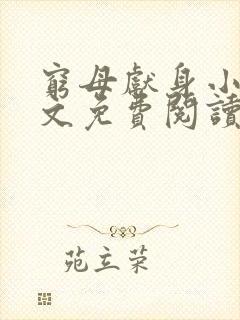 窮母獻身小
文免費閱讀
苑立荣